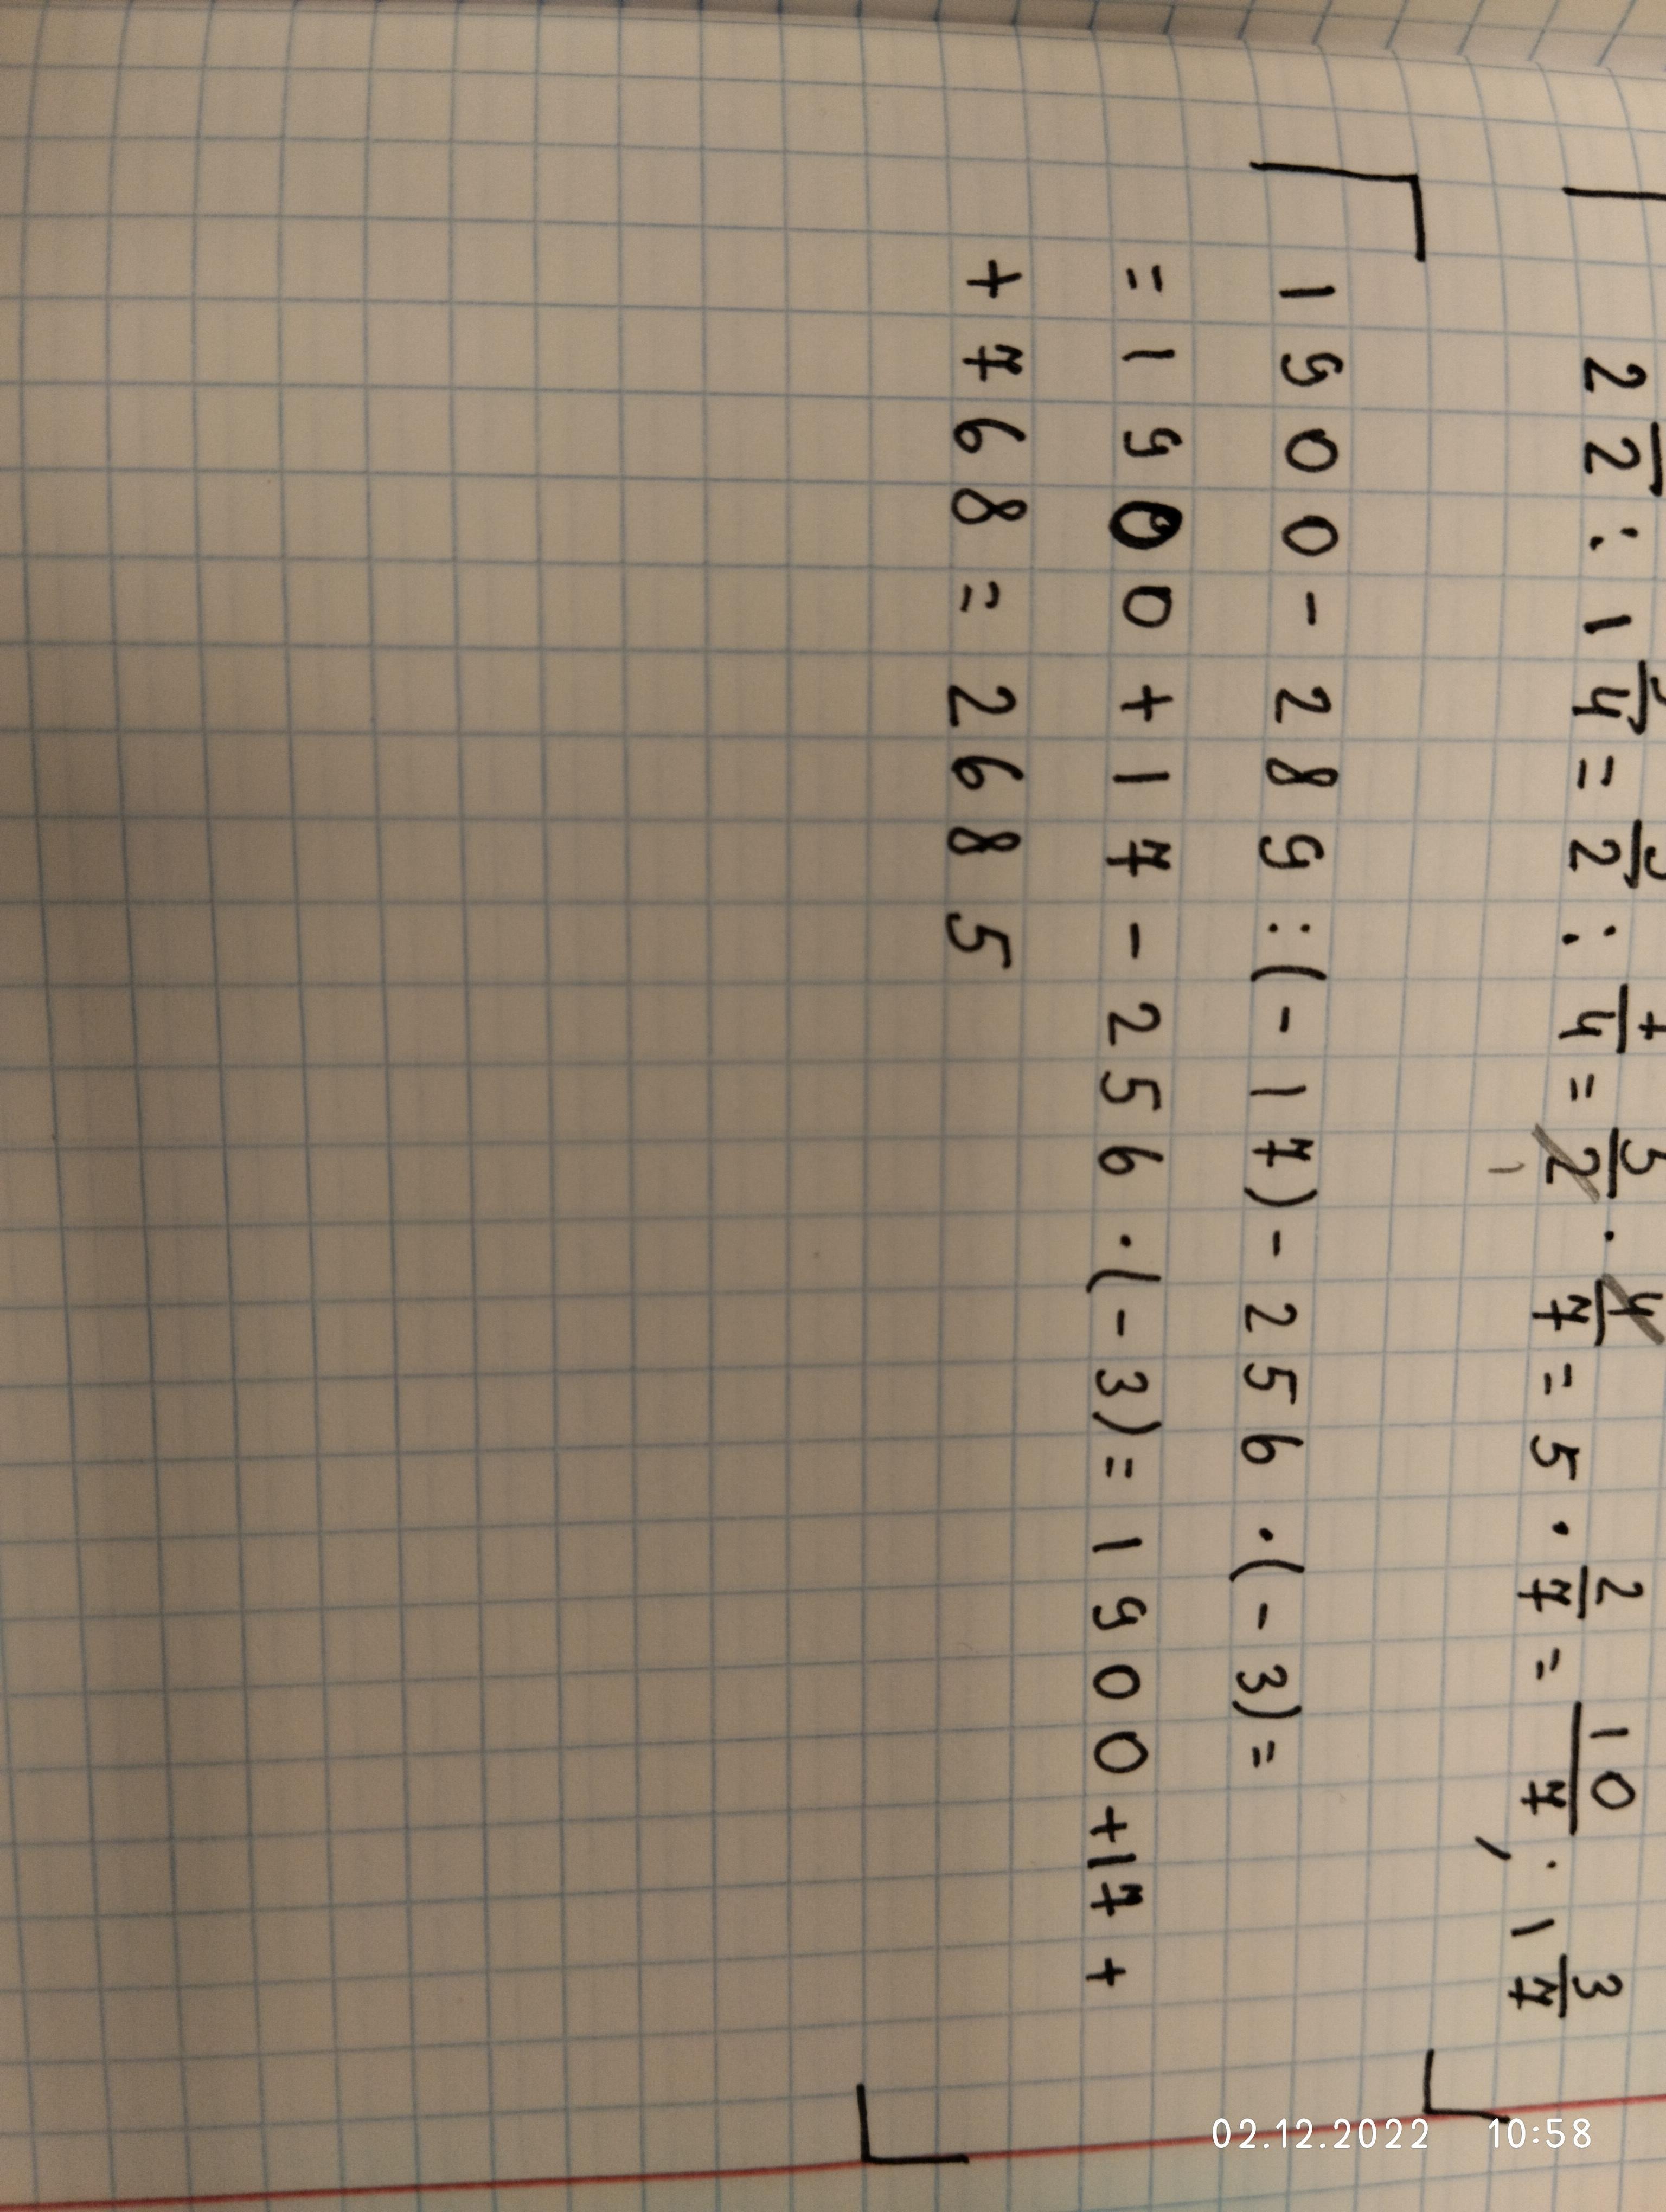 2 1/2 : 1 3/4 = 5/2 : 7/4 = 5/2 · 4/7 = 5 · 2/7 = 10/7 ; 1 3/7
1900-289:(-17)-256·(-3)=
=1900+17-256·(-3)=1900+17+
+768=2685
02.12.2022 10:58